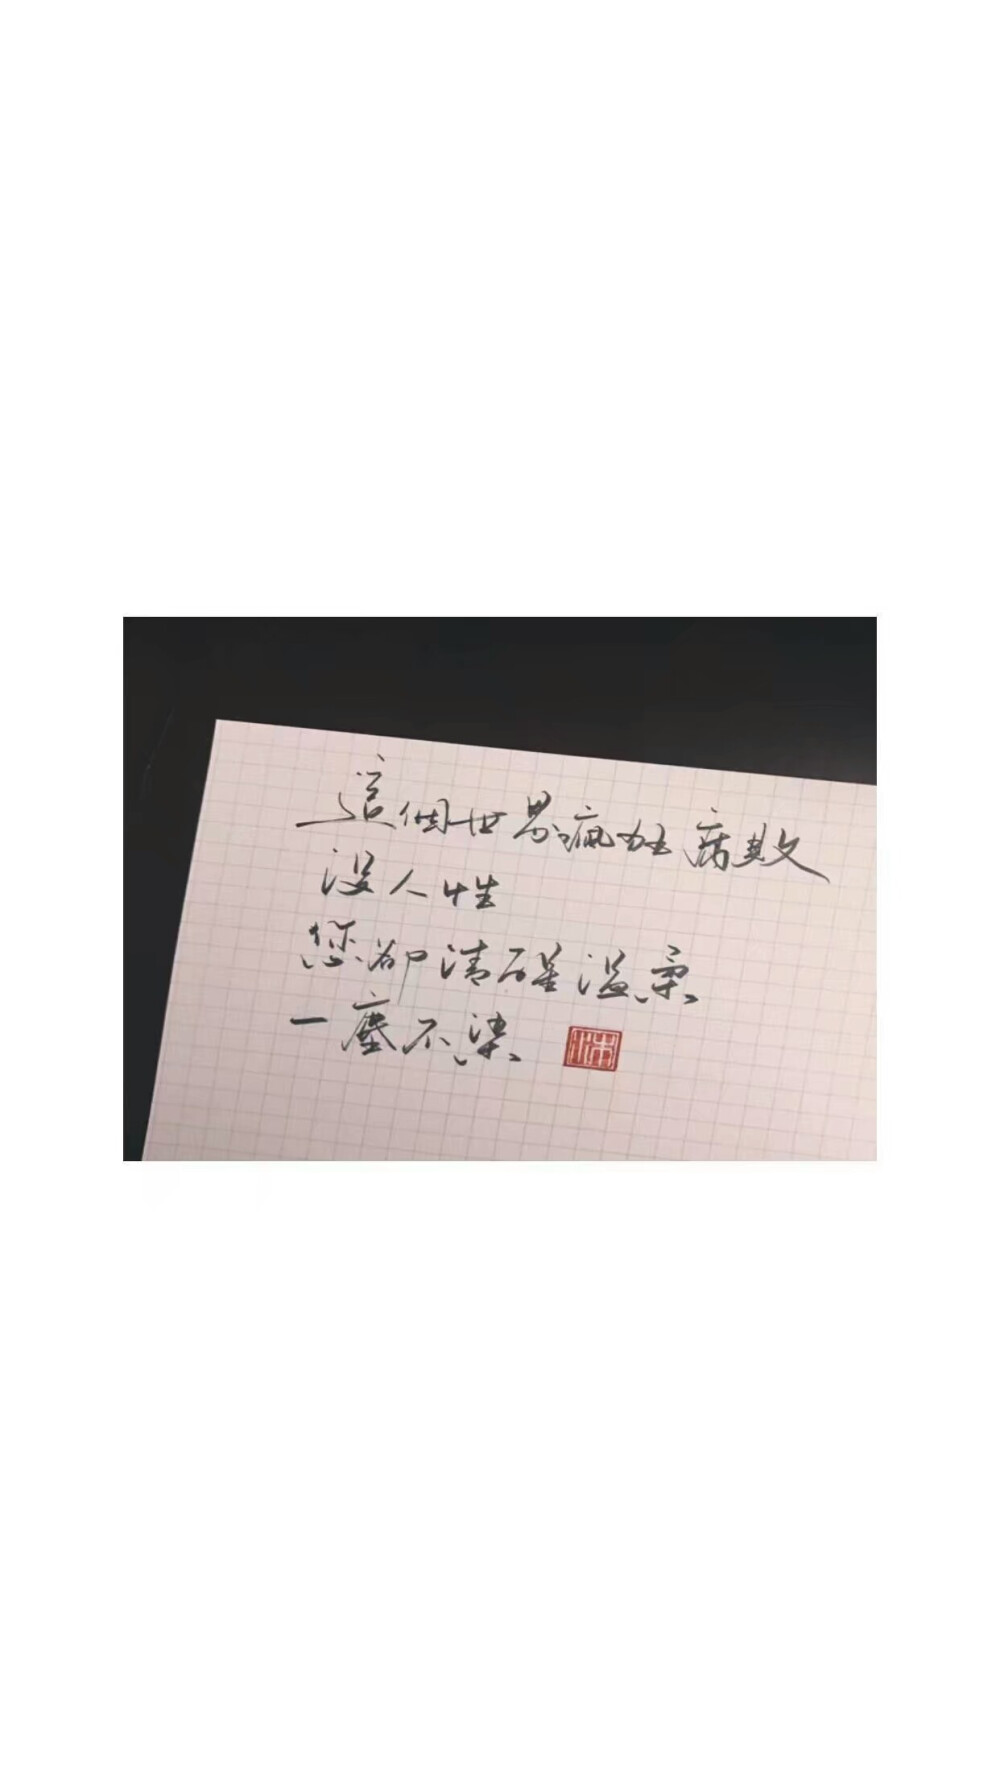 這個世界瘋狂腐敗
沒人性
您卻清醒溫柔
一塵不染